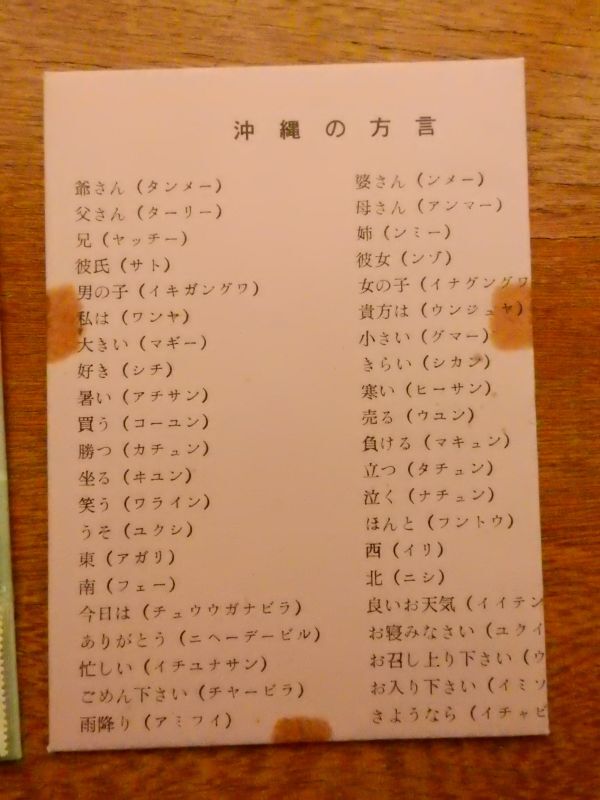 沖縄の方言
爺さん（タンメー） 婆さん（ンメー）
父さん（ターリー） 母さん（アンマー）
兄（ヤッチー） 姉（ンミー）
彼氏（サト） 彼女（ンゾ）
男の子（イキガングワ） 女の子（イナグングワ
私は（ワンヤ） 貴方は（ウンジュヤ）
大きい（マギー） 小さい（グマー）
好き（シチ） きらい（シカン）
暑い（アチサン） 寒い（ヒーサン）
買う（コーユン） 売る（ウユン）
勝つ（カチュン） 負ける（マキュン）
坐る（ヰユン） 立つ（タチュン）
笑う（ワライン） 泣く（ナチュン）
うそ（ユクシ） ほんと（フントウ）
東（アガリ） 西（イリ）
南（フェー） 北（ニシ）
今日は（チュウウガナビラ） 良いお天気（イイテン
ありがとう（ニヘーデービル） お寝みなさい（ユクイ
忙しい（イチユナサン） お召し上り下さい（ウ
ごめん下さい（チャービラ） お入り下さい（イミソ
雨降り（アミフイ） さようなら（イチャビ